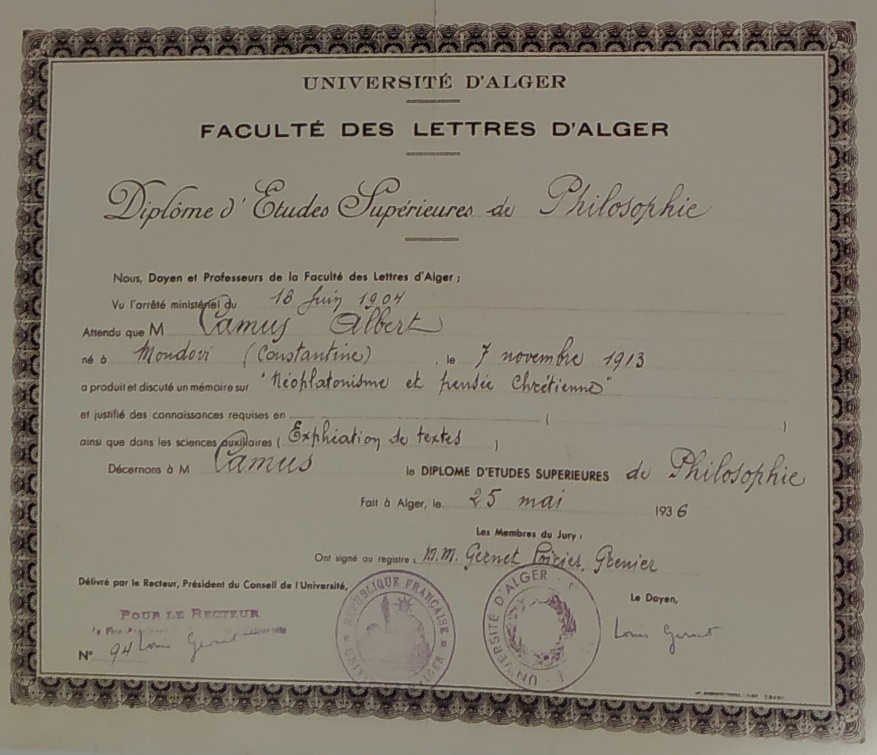 UNIVERSITÉ D'ALGER
FACULTÉ DES LETTRES D'ALGER
Diplôme d'Etudes Supérieures de Philosophie
Nous, Doyen et Professeurs de la Faculté des Lettres d'Alger ;
Vu l'arrêté ministériel du 18 Juin 1904
Attendu que M Camus Albert
né à Mondovi (Constantine), le 7 novembre 1913
a produit et discuté un mémoire sur "Néoplatonisme et pensée Chrétienne"
et justifié des connaissances requises en ( )
ainsi que dans les sciences auxiliaires ( Explication de textes )
Décernons à M Camus le DIPLOME D'ETUDES SUPERIEURES de Philosophie
Fait à Alger, le 25 mai 1936
Les Membres du Jury :
Ont signé au registre : M.M. Gernet Poirier, Grenier
Délivré par le Recteur, Président du Conseil de l'Université,
Le Doyen,
POUR LE RECTEUR
Louis Gernet
N° 94 Louis Gernet
RÉPUBLIQUE FRANÇAISE
UNIVERSITÉ D'ALGER